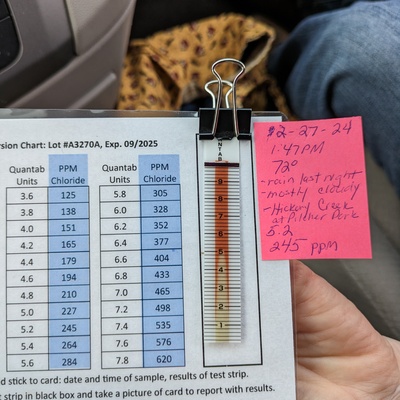 rsion Chart: Lot #A3270A, Exp. 09/2025
Quantab Units PPM Chloride Quantab Units PPM Chloride
3.6 125 5.8 305
3.8 138 6.0 328
4.0 151 6.2 352
4.2 165 6.4 377
4.4 179 6.6 404
4.6 194 6.8 433
4.8 210 7.0 465
5.0 227 7.2 498
5.2 245 7.4 535
5.4 264 7.6 576
5.6 284 7.8 620
d stick to card: date and time of sample, results of test strip.
t strip in black box and take a picture of card to report with results.
NTAB
9
8
7
6
5
4
3
2
1
2-27-24
1:47 PM
72°
-rain last night
-mostly cloudy
-Hickory Creek
at Pilcher Park
5.2
245 ppm